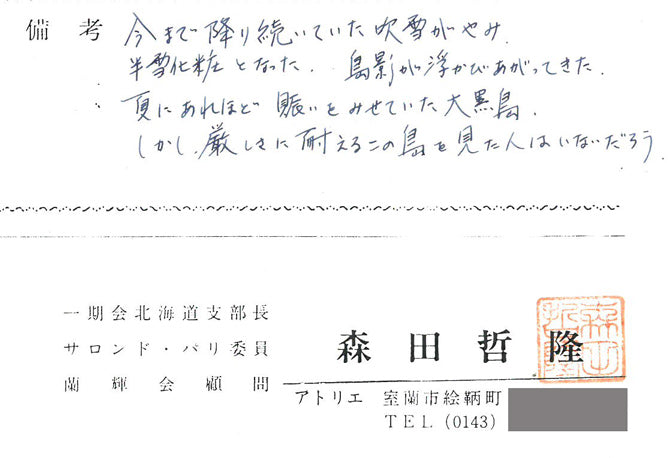 備考 今まで降り続いていた吹雪がやみ.
半雪化粧となった. 島影が浮かびあがってきた.
夏にあれほど賑いをみせていた大黒島.
しかし、厳しさに耐えるこの島を見た人はいないだろう.
一期会北海道支部長
サロンド・パリ委員
蘭輝会顧問
森田哲隆
森田哲隆
アトリエ 室蘭市絵鞆町
TEL (0143)